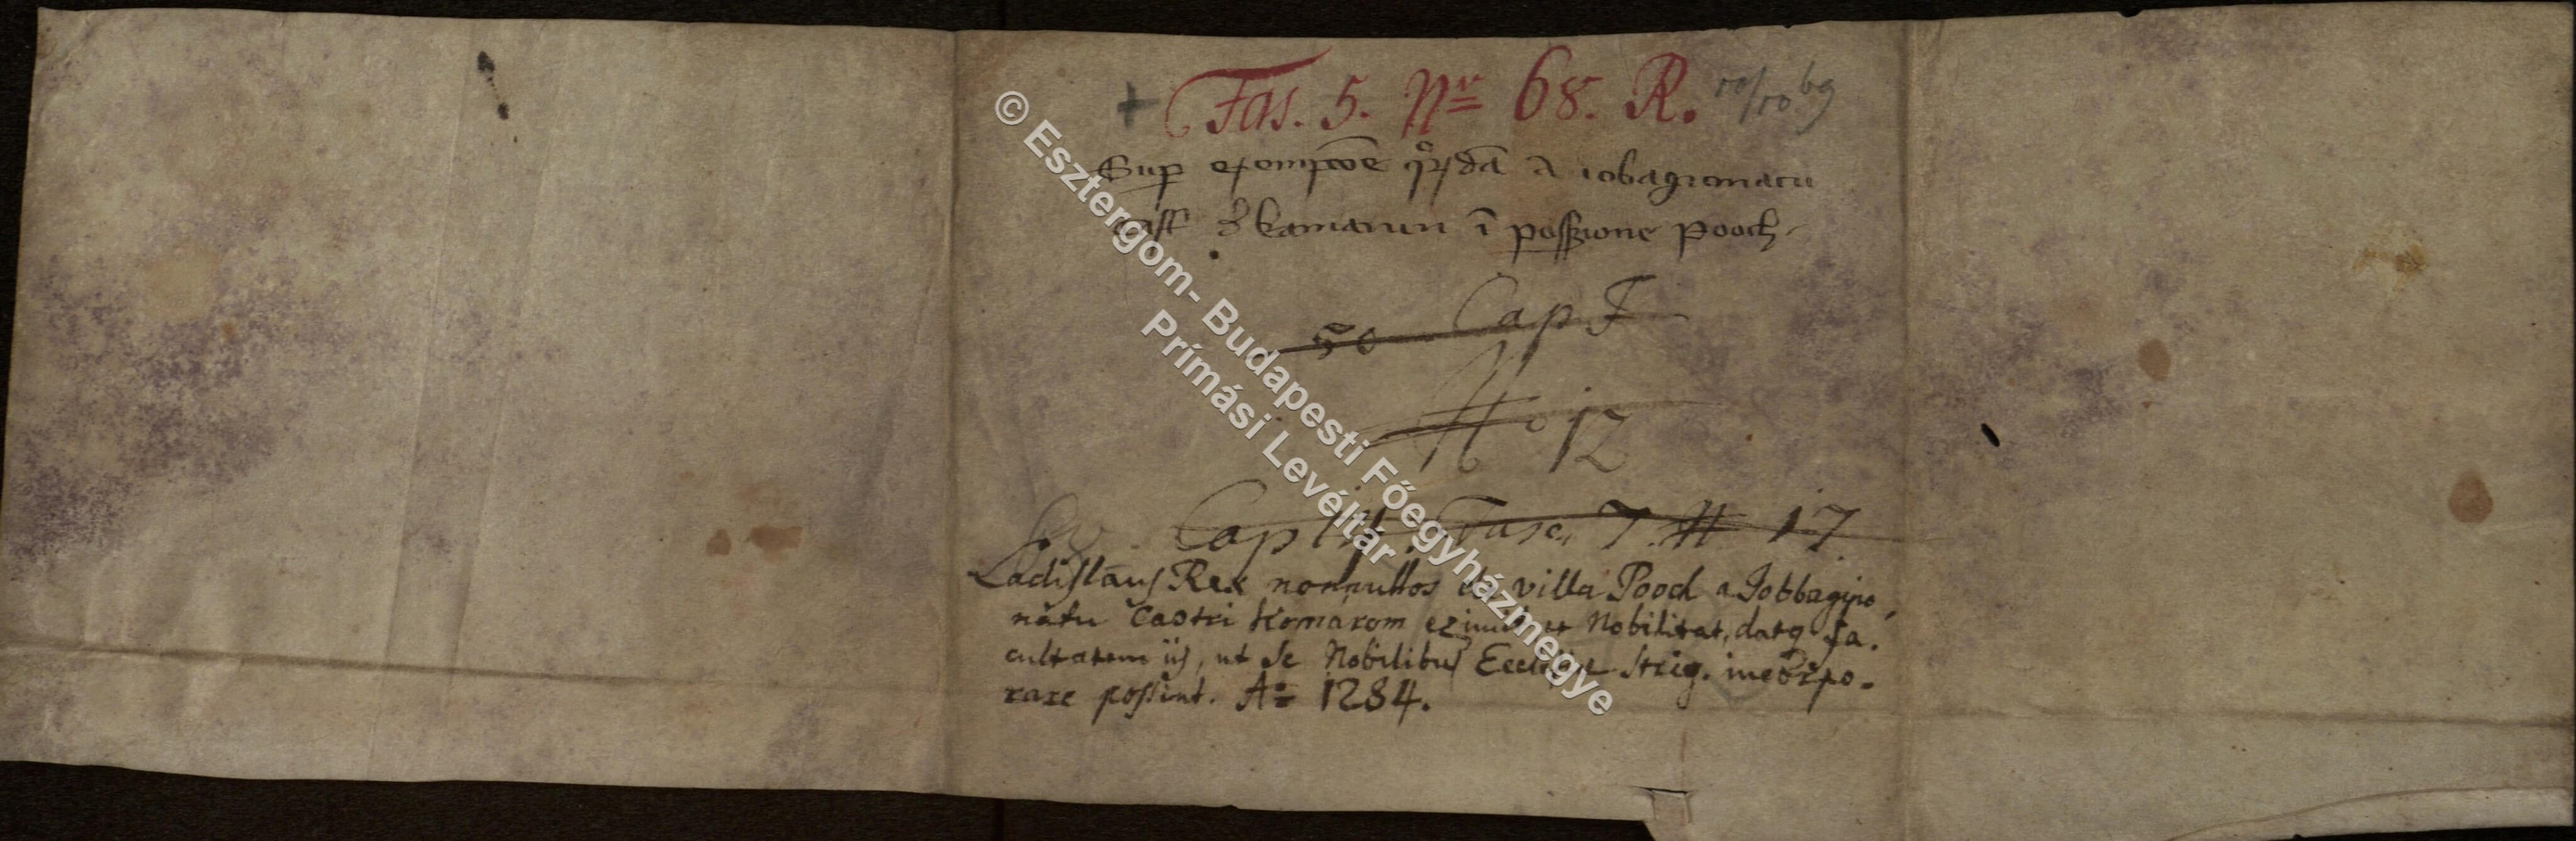 + Fas. 5. Nr 68. R.
Sup exempcōe qrdā a iobagionatu
cast d kamarun ī possione pooch
50 Cap I
N° 12
Cap Fasc. 7. N 17
Ladislaus Rex nonnullos de villa Pooch a Jobbagyio
natu Castri Komárom et Nobilitat, datq fa.
cultatem iis, ut se Nobilibus Ecclesiæ Strig. incorpo.
rare possint. A° 1284.
© Esztergom- Budapesti Főegyházmegye
Prímási Levéltár